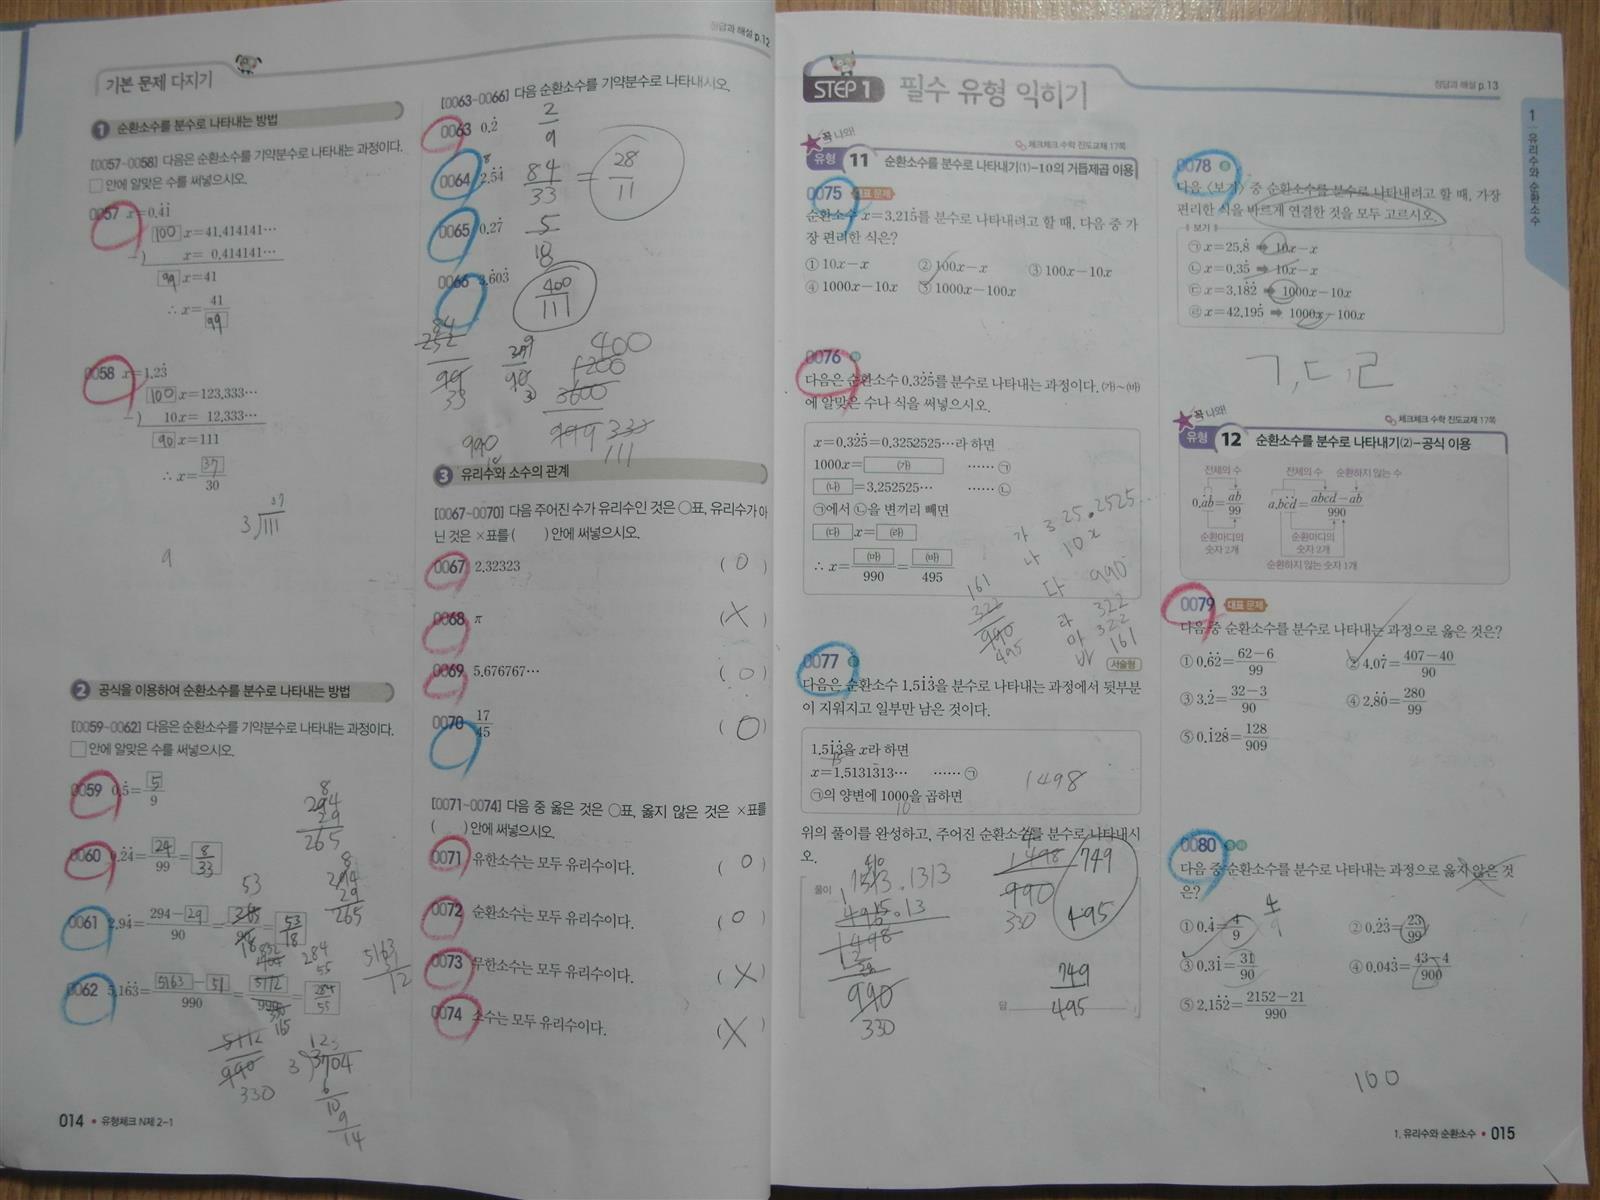 정답과 해설 p.12
기본 문제 다지기
1 순환소수를 분수로 나타내는 방법
[0057~0058] 다음은 순환소수를 기약분수로 나타내는 과정이다.
□ 안에 알맞은 수를 써넣으시오.
0057 x=0.4̇1̇
100 x=41.414141⋯
−) x= 0.414141⋯
99 x=41
∴ x= 41/99
0058 x=1.23̇
100 x=123.333⋯
−) 10x= 12.333⋯
90 x=111
∴ x= 37/30
37
3)111
9
2 공식을 이용하여 순환소수를 분수로 나타내는 방법
[0059~0062] 다음은 순환소수를 기약분수로 나타내는 과정이다.
□ 안에 알맞은 수를 써넣으시오.
0059 0.5̇= 5/9
0060 0.2̇4̇= 24/99 = 8/33
0061 2.94̇= 294−29/90 = 265/90 = 53/18
0062 5.16̇3̇= 5163−51/990 = 5112/990 = 284/55
294
29
265
294
29
265
5112
990
330
3)3704
014 • 유형체크 N제 2-1
[0063~0066] 다음 순환소수를 기약분수로 나타내시오.
0063 0.2̇ 2/9
0064 2.5̇4̇ 84/33 = 28/11
0065 0.27̇ 5/18
0066 3.6̇03̇ 400/111
3 유리수와 소수의 관계
[0067~0070] 다음 주어진 수가 유리수인 것은 ○표, 유리수가 아
닌 것은 ×표를 ( ) 안에 써넣으시오.
0067 2.32323 (○)
0068 π (×)
0069 5.676767⋯ (○)
0070 17/45 (○)
[0071~0074] 다음 중 옳은 것은 ○표, 옳지 않은 것은 ×표를
( ) 안에 써넣으시오.
0071 유한소수는 모두 유리수이다. (○)
0072 순환소수는 모두 유리수이다. (○)
0073 무한소수는 모두 유리수이다. (×)
0074 소수는 모두 유리수이다. (×)
정답과 해설 p.13
STEP 1 필수 유형 익히기
꼭 나와!
체크체크 수학 진도교재 17쪽
유형 11 순환소수를 분수로 나타내기(1)-10의 거듭제곱 이용
0075 대표 문제
순환소수 x=3.215̇를 분수로 나타내려고 할 때, 다음 중 가
장 편리한 식은?
① 10x−x ② 100x−x ③ 100x−10x
④ 1000x−10x ⑤ 1000x−100x
0076
다음은 순환소수 0.32̇5̇를 분수로 나타내는 과정이다. ㈎~㈕
에 알맞은 수나 식을 써넣으시오.
x=0.32̇5̇=0.3252525⋯라 하면
1000x= ㈎ ⋯⋯ ㉠
㈏ =3.252525⋯ ⋯⋯ ㉡
㉠에서 ㉡을 변끼리 빼면
㈐ x= ㈑
∴ x= ㈒/990 = ㈓/495
가 325.2525...
나 10x
다 990
라 322
마 322
바 161
161
322
990
495
0077
서술형
다음은 순환소수 1.51̇3̇을 분수로 나타내는 과정에서 뒷부분
이 지워지고 일부만 남은 것이다.
1.51̇3̇을 x라 하면
x=1.5131313⋯ ⋯⋯ ㉠
㉠의 양변에 1000을 곱하면
1498
위의 풀이를 완성하고, 주어진 순환소수를 분수로 나타내시
오.
풀이
1513.1313
1498
990
330
1498
990
330
749
495
답 749/495
0078
다음 〈보기〉 중 순환소수를 분수로 나타내려고 할 때, 가장
편리한 식을 바르게 연결한 것을 모두 고르시오.
보기
㉠ x=25.8̇ ➡ 10x−x
㉡ x=0.35̇ ➡ 10x−x
㉢ x=3.18̇2̇ ➡ 1000x−10x
㉣ x=42.195̇ ➡ 1000x−100x
ㄱ,ㄷ,ㄹ
꼭 나와!
체크체크 수학 진도교재 17쪽
유형 12 순환소수를 분수로 나타내기(2)-공식 이용
전체의 수
0.ȧḃ= ab/99
순환마디의
숫자 2개
전체의 수 순환하지 않는 수
a.bċḋ= abcd−ab/990
순환마디의
숫자 2개
순환하지 않는 숫자 1개
0079 대표 문제
다음 중 순환소수를 분수로 나타내는 과정으로 옳은 것은?
① 0.6̇2̇= 62−6/99 ② 4.07̇= 407−40/90
③ 3.2̇= 32−3/90 ④ 2.8̇0̇= 280/99
⑤ 0.1̇28̇= 128/909
0080
다음 중 순환소수를 분수로 나타내는 과정으로 옳지 않은 것
은?
① 0.4̇= 4/9 ② 0.2̇3̇= 23/99
③ 0.31̇= 31/90 ④ 0.043̇= 43−4/900
⑤ 2.15̇2̇= 2152−21/990
100
1 유리수와 순환소수
1. 유리수와 순환소수 • 015